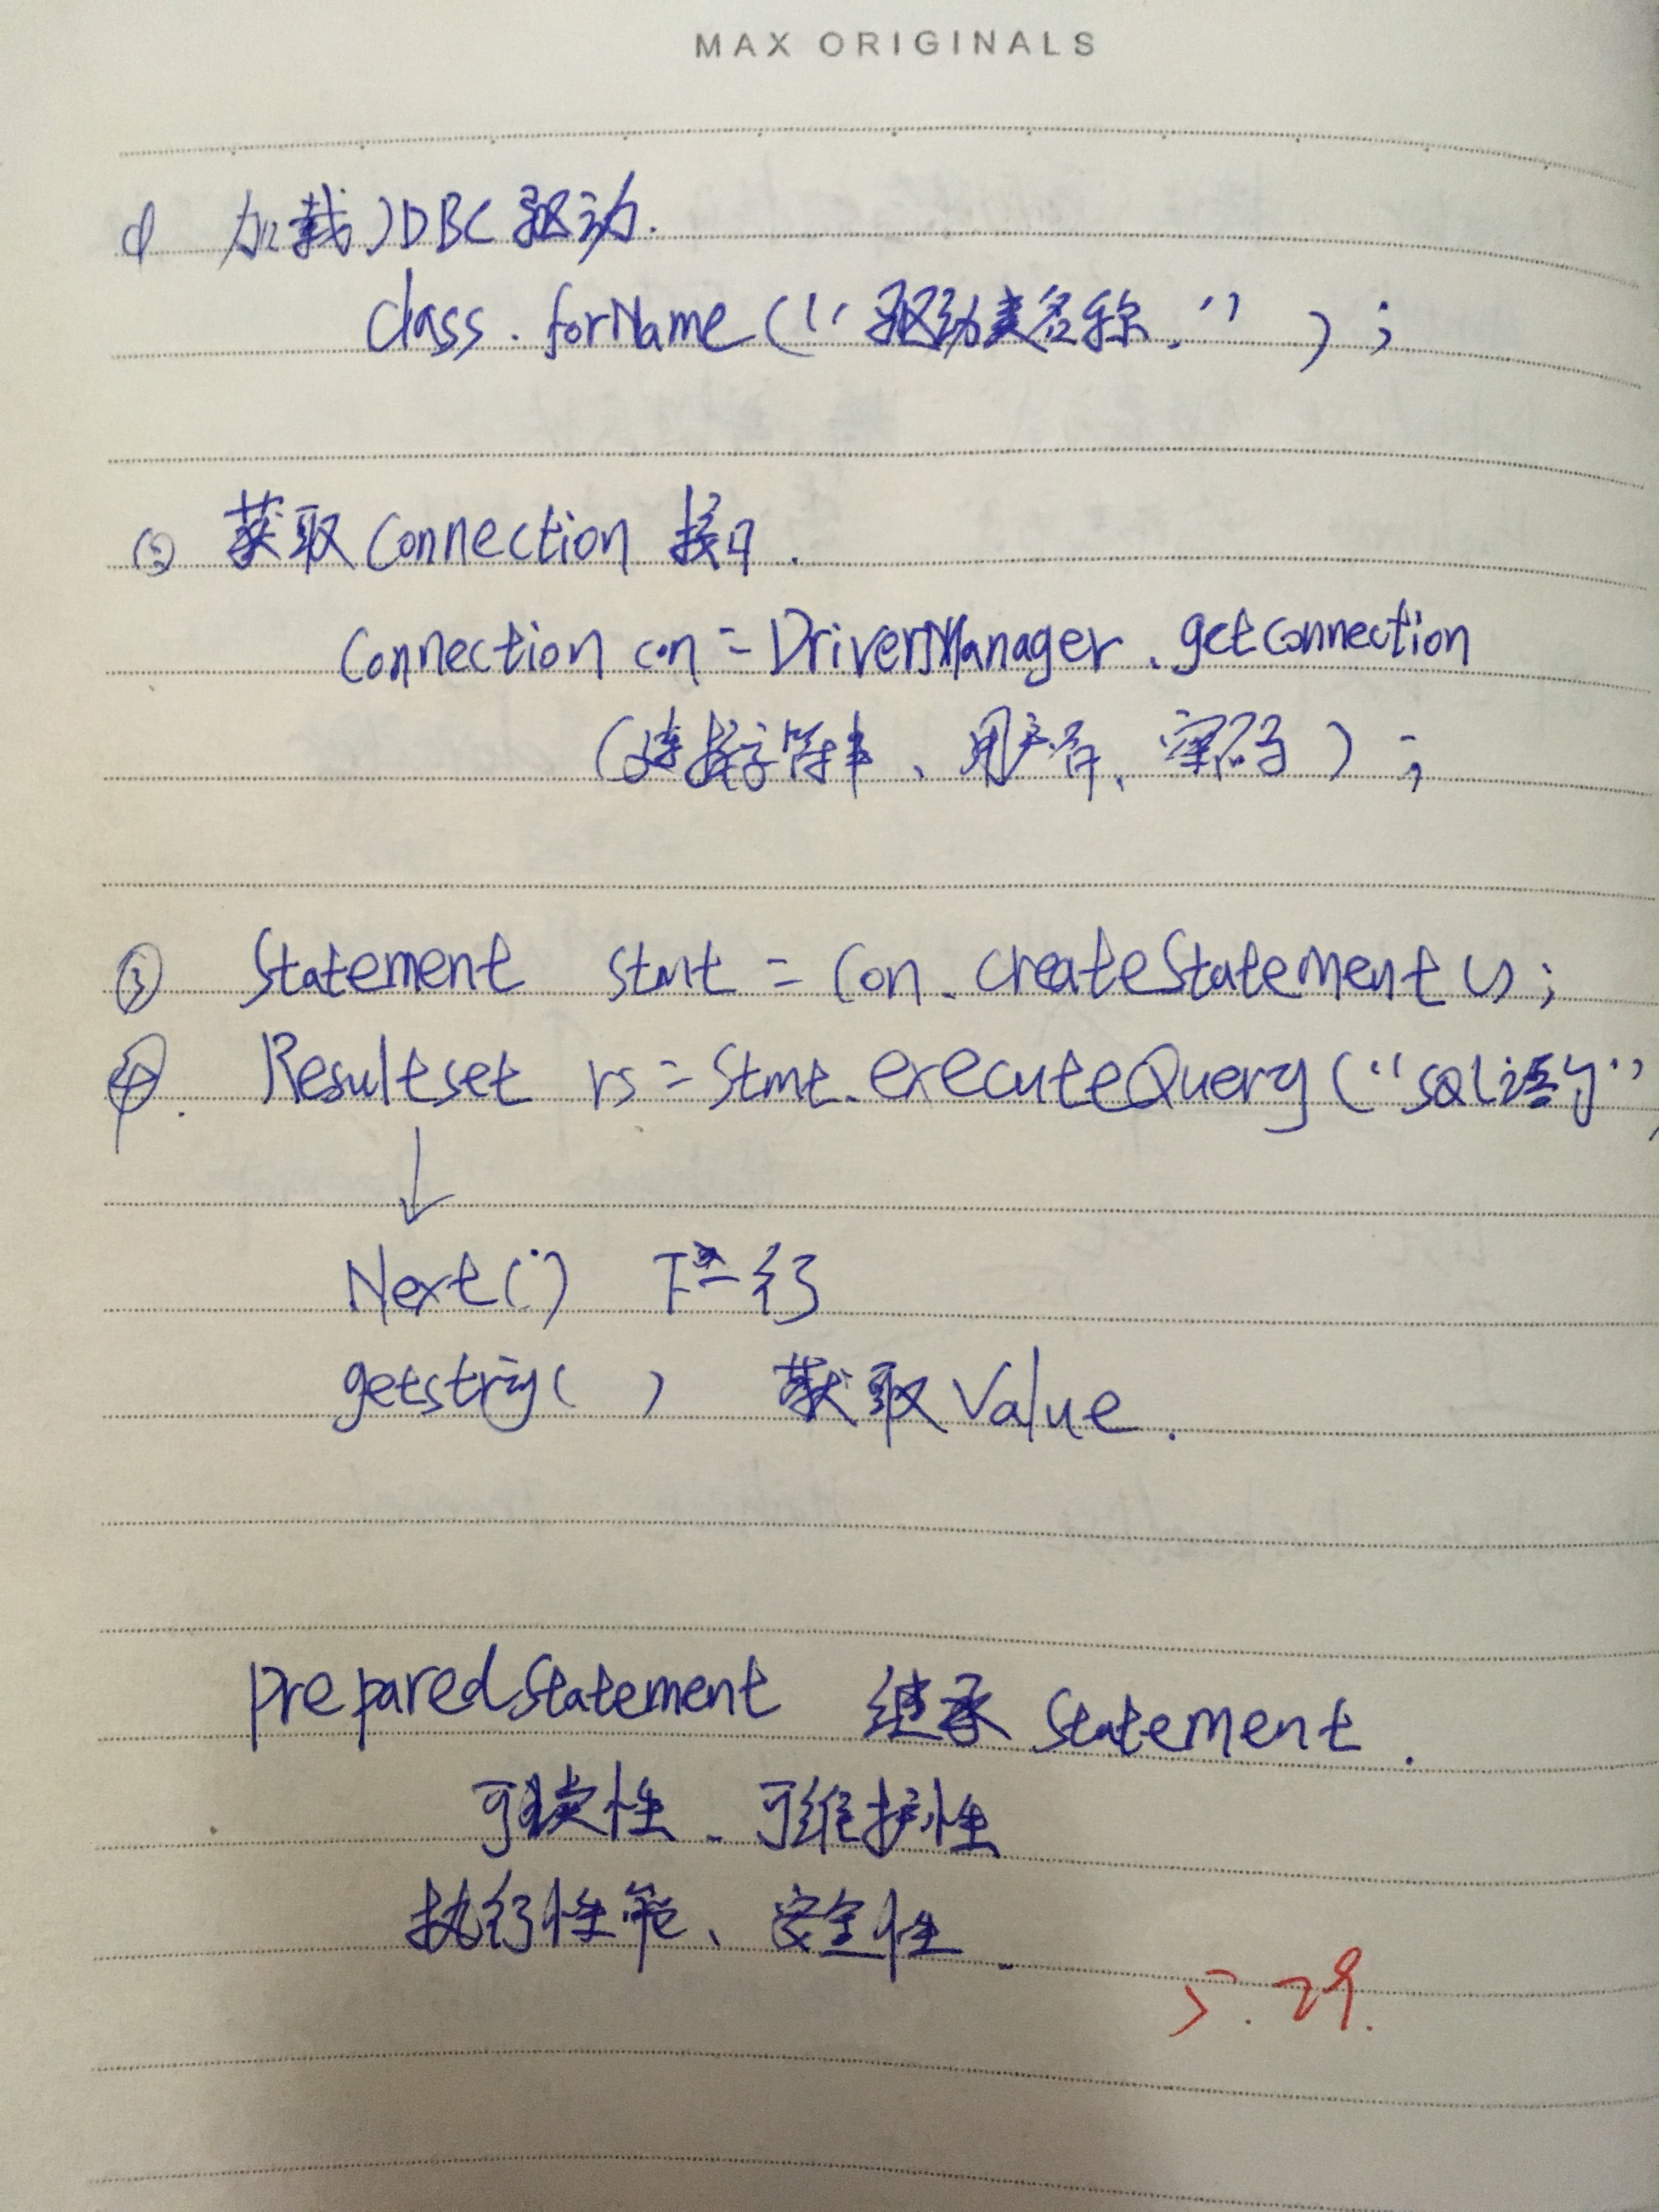 MAX ORIGINALS
① 加载JDBC驱动.
class.forName("驱动类名称.");
② 获取Connection 接口.
Connection con = DriverManager.getConnection
(连接字符串、用户名、密码);
③ Statement stmt = Con.createStatement();
④. Resultset rs = Stmt.executeQuery("SQL语句")
↓
Next() 下一行
getstring( ) 获取Value.
preparedStatement 继承 Statement.
可读性、可维护性
执行性能、安全性.
5.29.